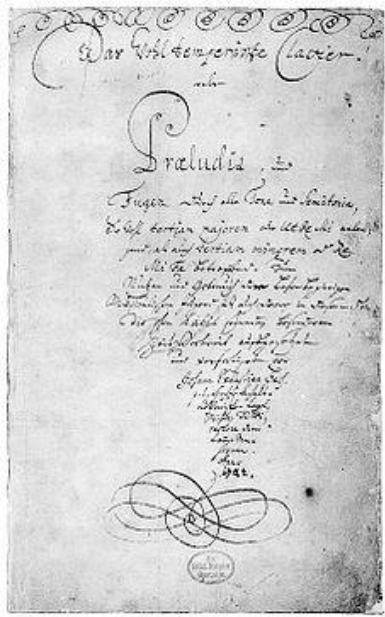 Das Wohl temperirte Clavier.
oder
Præludia, und
Fugen durch alle Tone und Semitonia,
So wohl tertiam majorem oder Ut Re Mi anlan-
gend, als auch tertiam minorem oder Re
Mi Fa betreffend. Zum
Nutzen und Gebrauch der Lehrbegierigen
Musicalischen Jugend, als auch derer in diesem stu-
dio schon habil seyenden besonderem
Zeitvertreib auffgesetzet
und verfertiget von
Johann Sebastian Bach.
Anno
1722.